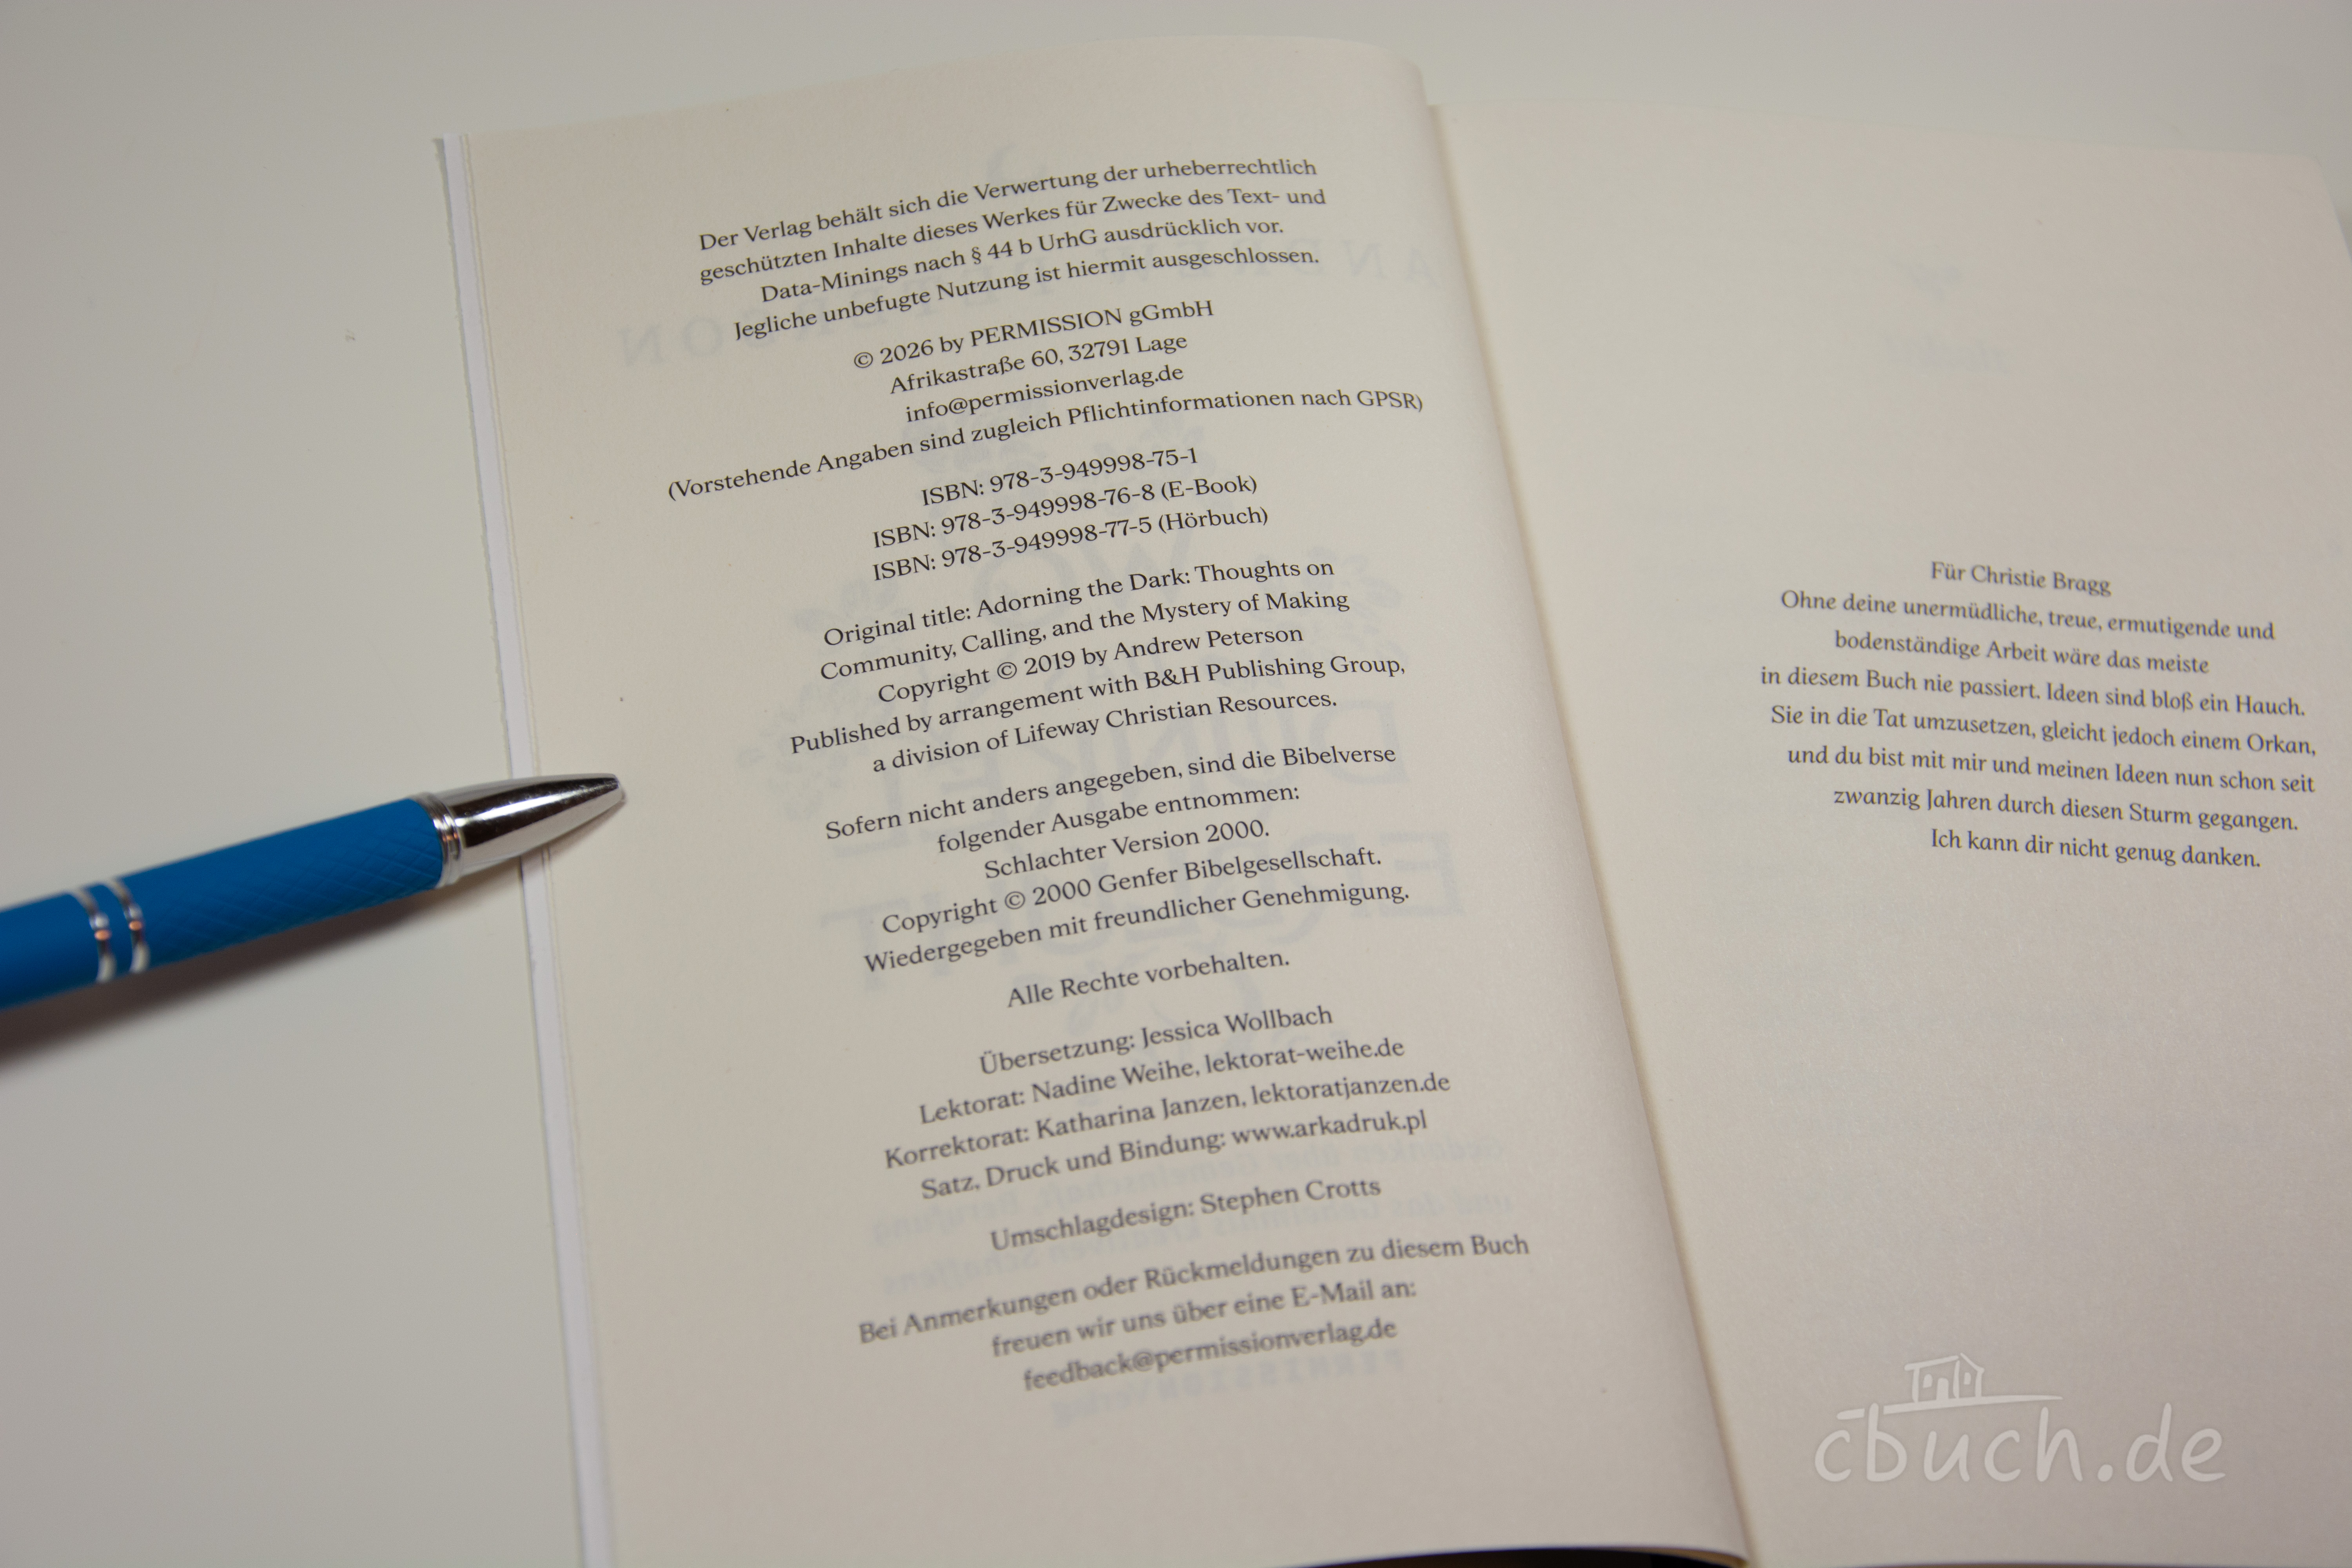 Der Verlag behält sich die Verwertung der urheberrechtlich
geschützten Inhalte dieses Werkes für Zwecke des Text- und
Data-Minings nach § 44 b UrhG ausdrücklich vor.
Jegliche unbefugte Nutzung ist hiermit ausgeschlossen.
© 2026 by PERMISSION gGmbH
Afrikastraße 60, 32791 Lage
info@permissionverlag.de
(Vorstehende Angaben sind zugleich Pflichtinformationen nach GPSR)
ISBN: 978-3-949998-75-1
ISBN: 978-3-949998-76-8 (E-Book)
ISBN: 978-3-949998-77-5 (Hörbuch)
Original title: Adorning the Dark: Thoughts on
Community, Calling, and the Mystery of Making
Copyright © 2019 by Andrew Peterson
Published by arrangement with B&H Publishing Group,
a division of Lifeway Christian Resources.
Sofern nicht anders angegeben, sind die Bibelverse
folgender Ausgabe entnommen:
Schlachter Version 2000.
Copyright © 2000 Genfer Bibelgesellschaft.
Wiedergegeben mit freundlicher Genehmigung.
Alle Rechte vorbehalten.
Übersetzung: Jessica Wollbach
Lektorat: Nadine Weihe, lektorat-weihe.de
Korrektorat: Katharina Janzen, lektoratjanzen.de
Satz, Druck und Bindung: www.arkadruk.pl
Umschlagdesign: Stephen Crotts
Bei Anmerkungen oder Rückmeldungen zu diesem Buch
freuen wir uns über eine E-Mail an:
feedback@permissionverlag.de
Für Christie Bragg
Ohne deine unermüdliche, treue, ermutigende und
bodenständige Arbeit wäre das meiste
in diesem Buch nie passiert. Ideen sind bloß ein Hauch.
Sie in die Tat umzusetzen, gleicht jedoch einem Orkan,
und du bist mit mir und meinen Ideen nun schon seit
zwanzig Jahren durch diesen Sturm gegangen.
Ich kann dir nicht genug danken.
cbuch.de